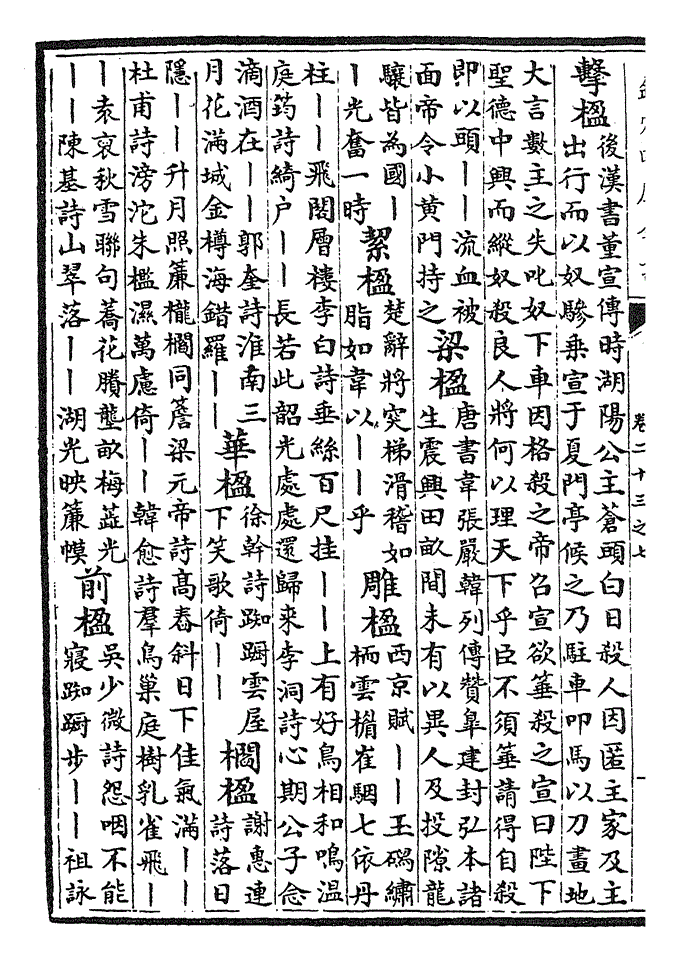 卷二十三之七
擊楹
後漢書董宣傳時湖陽公主蒼頭白日殺人因匿主家及主
出行而以奴驂乘宣于夏門亭候之乃駐車叩馬以刀畫地
大言數主之失叱奴下車因格殺之帝召宣欲箠殺之宣曰陛下
聖德中興而縱奴殺良人將何以理天下乎臣不須箠請得自殺
即以頭——流血被
面帝令小黄門持之
梁楹
唐書韋張嚴韓列傳贊臯建封弘本諸
生震興田畝間未有以異人及投隙龍
驤皆為國—
—光奮一時
絜楹
楚辭將突梯滑稽如
脂如韋以——乎
雕楹
西京賦——玉磶繡
栭雲楣崔駰七依丹
柱——飛閣層樓李白詩垂絲百尺挂——上有好鳥相和鳴温
庭筠詩綺户——長若此韶光處處還歸来李洞詩心期公子念
滴酒在——郭奎詩淮南三
月花滿城金樽海錯羅——
華楹
徐幹詩踟蹰雲屋
下笑歌倚——
櫩楹
謝惠連
詩落日
隱——升月照簾櫳櫩同簷梁元帝詩髙舂斜日下佳氣滿——
杜甫詩滂沱朱檻濕萬慮倚——韓愈詩羣鳥巢庭樹乳雀飛—
—袁裒秋雪聯句蕎花賸壟畝梅蕋光
——陳基詩山翠落——湖光映簾幙
前楹
吳少微詩怨咽不能
寢踟蹰步——祖詠